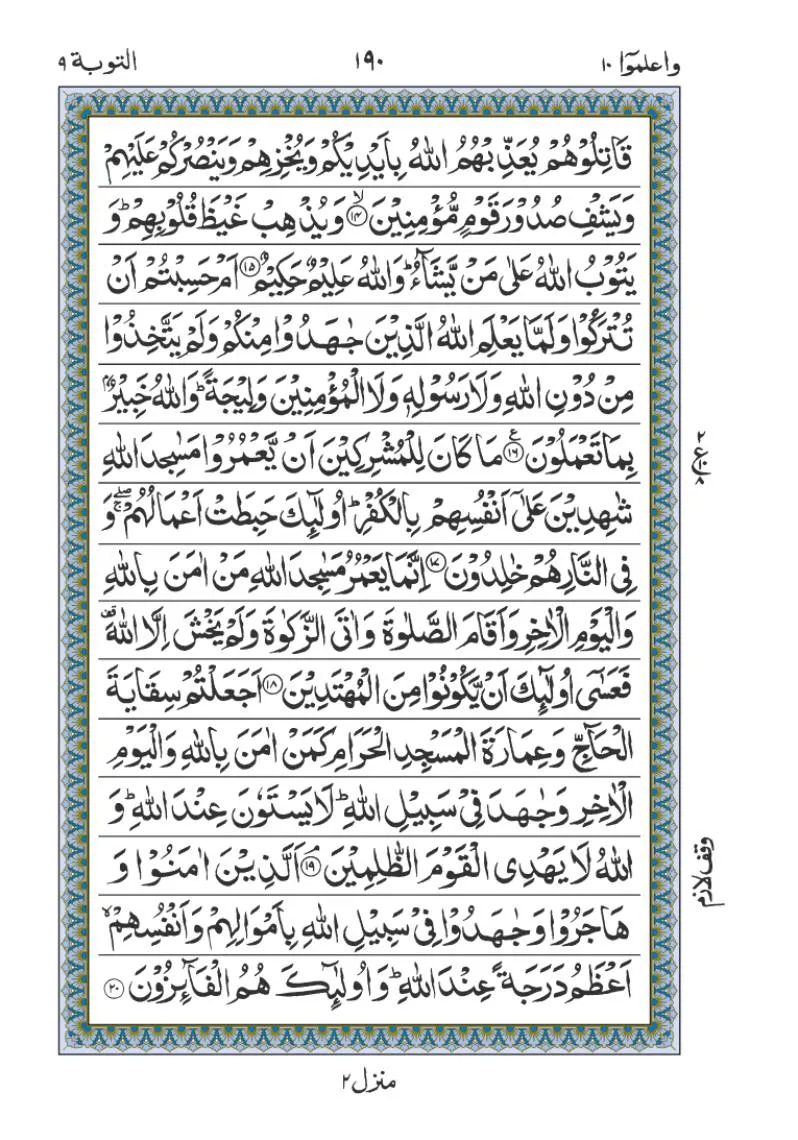 واعلموٓا ۱۰
۱۹۰
التوبة ۹
قَاتِلُوْهُمْ يُعَذِّبْهُمُ اللّٰهُ بِاَيْدِيْكُمْ وَيُخْزِهِمْ وَيَنْصُرْكُمْ عَلَيْهِمْ
وَيَشْفِ صُدُوْرَ قَوْمٍ مُّؤْمِنِيْنَ ۙ‏﴿۱۴﴾ وَيُذْهِبْ غَيْظَ قُلُوْبِهِمْ ؕ وَ
يَتُوْبُ اللّٰهُ عَلٰى مَنْ يَّشَآءُ ؕ وَاللّٰهُ عَلِيْمٌ حَكِيْمٌ ﴿۱۵﴾ اَمْ حَسِبْتُمْ اَنْ
تُتْرَكُوْا وَلَمَّا يَعْلَمِ اللّٰهُ الَّذِيْنَ جٰهَدُوْا مِنْكُمْ وَلَمْ يَتَّخِذُوْا
مِنْ دُوْنِ اللّٰهِ وَلَا رَسُوْلِهٖ وَلَا الْمُؤْمِنِيْنَ وَلِيْجَةً ؕ وَاللّٰهُ خَبِيْرٌۢ
بِمَا تَعْمَلُوْنَ ﴿۱۶﴾ مَا كَانَ لِلْمُشْرِكِيْنَ اَنْ يَّعْمُرُوْا مَسٰجِدَ اللّٰهِ
شٰهِدِيْنَ عَلٰٓى اَنْفُسِهِمْ بِالْكُفْرِ ؕ اُولٰٓئِكَ حَبِطَتْ اَعْمَالُهُمْ ۖۚ وَ
فِى النَّارِ هُمْ خٰلِدُوْنَ ﴿۱۷﴾ اِنَّمَا يَعْمُرُ مَسٰجِدَ اللّٰهِ مَنْ اٰمَنَ بِاللّٰهِ
وَالْيَوْمِ الْاٰخِرِ وَاَقَامَ الصَّلٰوةَ وَاٰتَى الزَّكٰوةَ وَلَمْ يَخْشَ اِلَّا اللّٰهَ
فَعَسٰٓى اُولٰٓئِكَ اَنْ يَّكُوْنُوْا مِنَ الْمُهْتَدِيْنَ ﴿۱۸﴾ اَجَعَلْتُمْ سِقَايَةَ
الْحَآجِّ وَعِمَارَةَ الْمَسْجِدِ الْحَرَامِ كَمَنْ اٰمَنَ بِاللّٰهِ وَالْيَوْمِ
الْاٰخِرِ وَجٰهَدَ فِىْ سَبِيْلِ اللّٰهِ ؕ لَا يَسْتَوٗنَ عِنْدَ اللّٰهِ ؕ وَ
اللّٰهُ لَا يَهْدِى الْقَوْمَ الظّٰلِمِيْنَ ۘ ﴿۱۹﴾ اَلَّذِيْنَ اٰمَنُوْا وَ
هَاجَرُوْا وَجٰهَدُوْا فِىْ سَبِيْلِ اللّٰهِ بِاَمْوَالِهِمْ وَاَنْفُسِهِمْ ۙ
اَعْظَمُ دَرَجَةً عِنْدَ اللّٰهِ ؕ وَاُولٰٓئِكَ هُمُ الْفَآئِزُوْنَ ﴿۲۰﴾
وقف لازم
منزل ۲